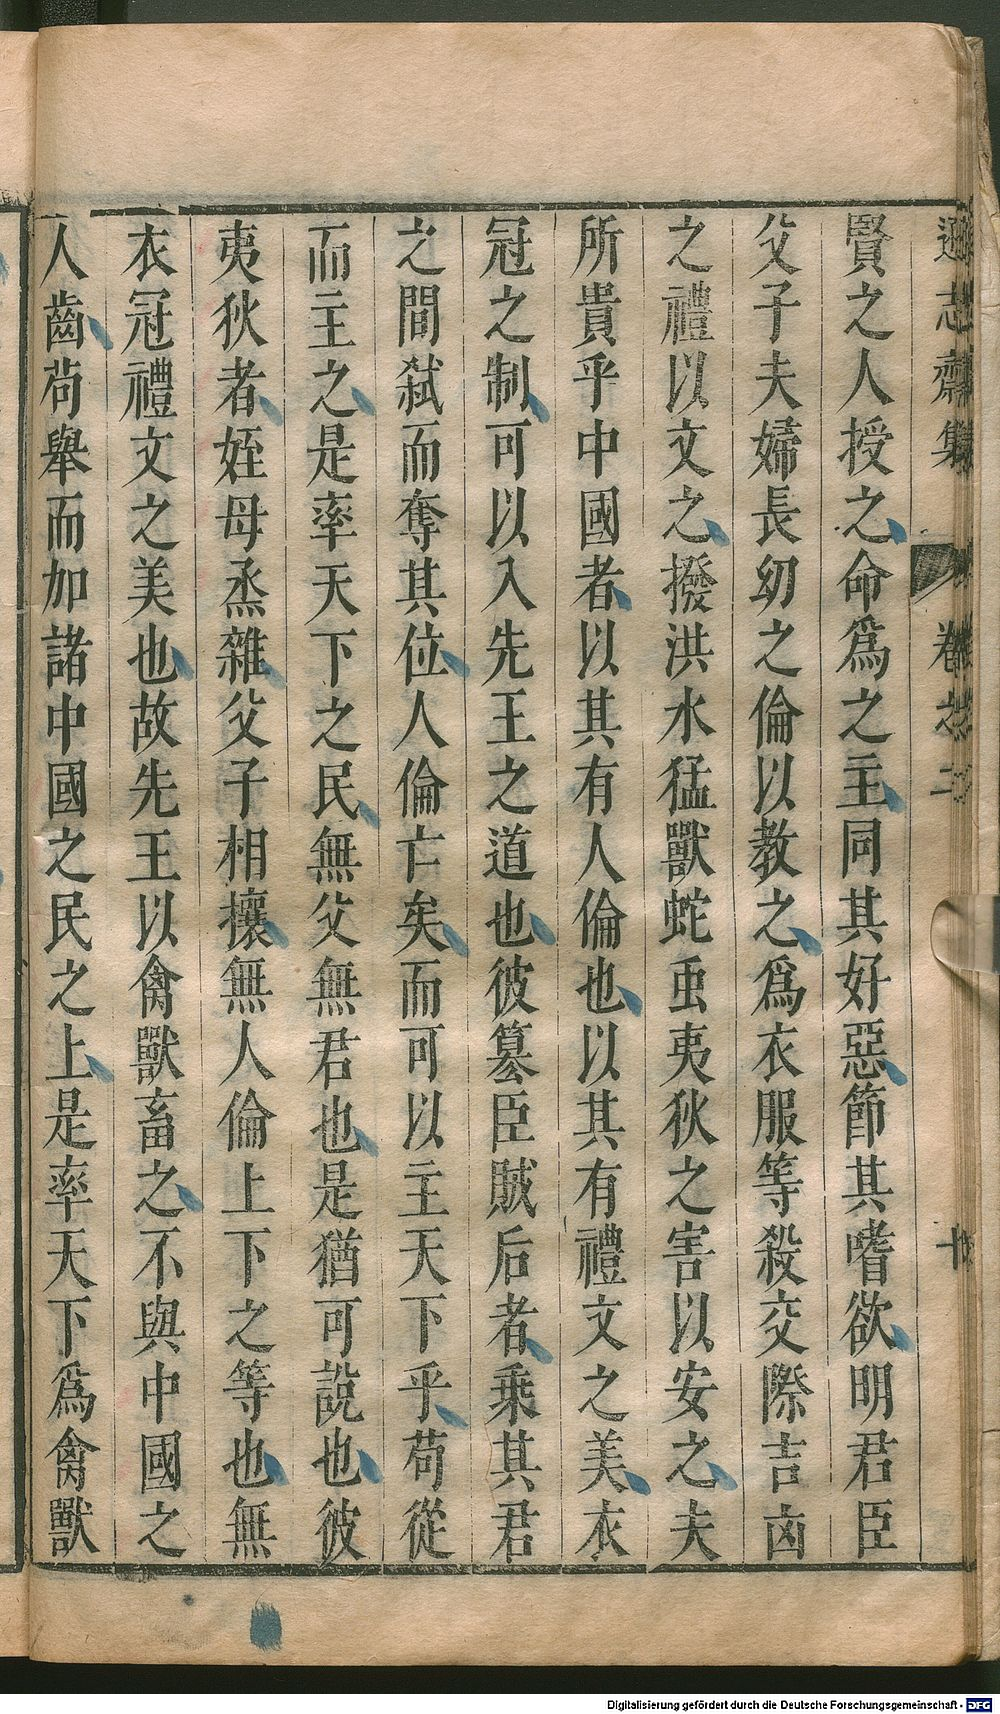 遜志齋集 卷之二 十
賢之人授之命爲之主同其好惡節其嗜欲明君臣
父子夫婦長幼之倫以教之爲衣服等殺交際吉凶
之禮以文之撥洪水猛獸蛇虫夷狄之害以安之夫
所貴乎中國者以其有人倫也以其有禮文之美衣
冠之制可以入先王之道也彼簒臣賊后者乘其君
之間弑而奪其位人倫亡矣而可以主天下乎苟從
而主之是率天下之民無父無君也是猶可說也彼
夷狄者姪母烝雜父子相攘無人倫上下之等也無
衣冠禮文之美也故先王以禽獸畜之不與中國之
人齒苟舉而加諸中國之民之上是率天下爲禽獸
Digitalisierung gefördert durch die Deutsche Forschungsgemeinschaft - DFG